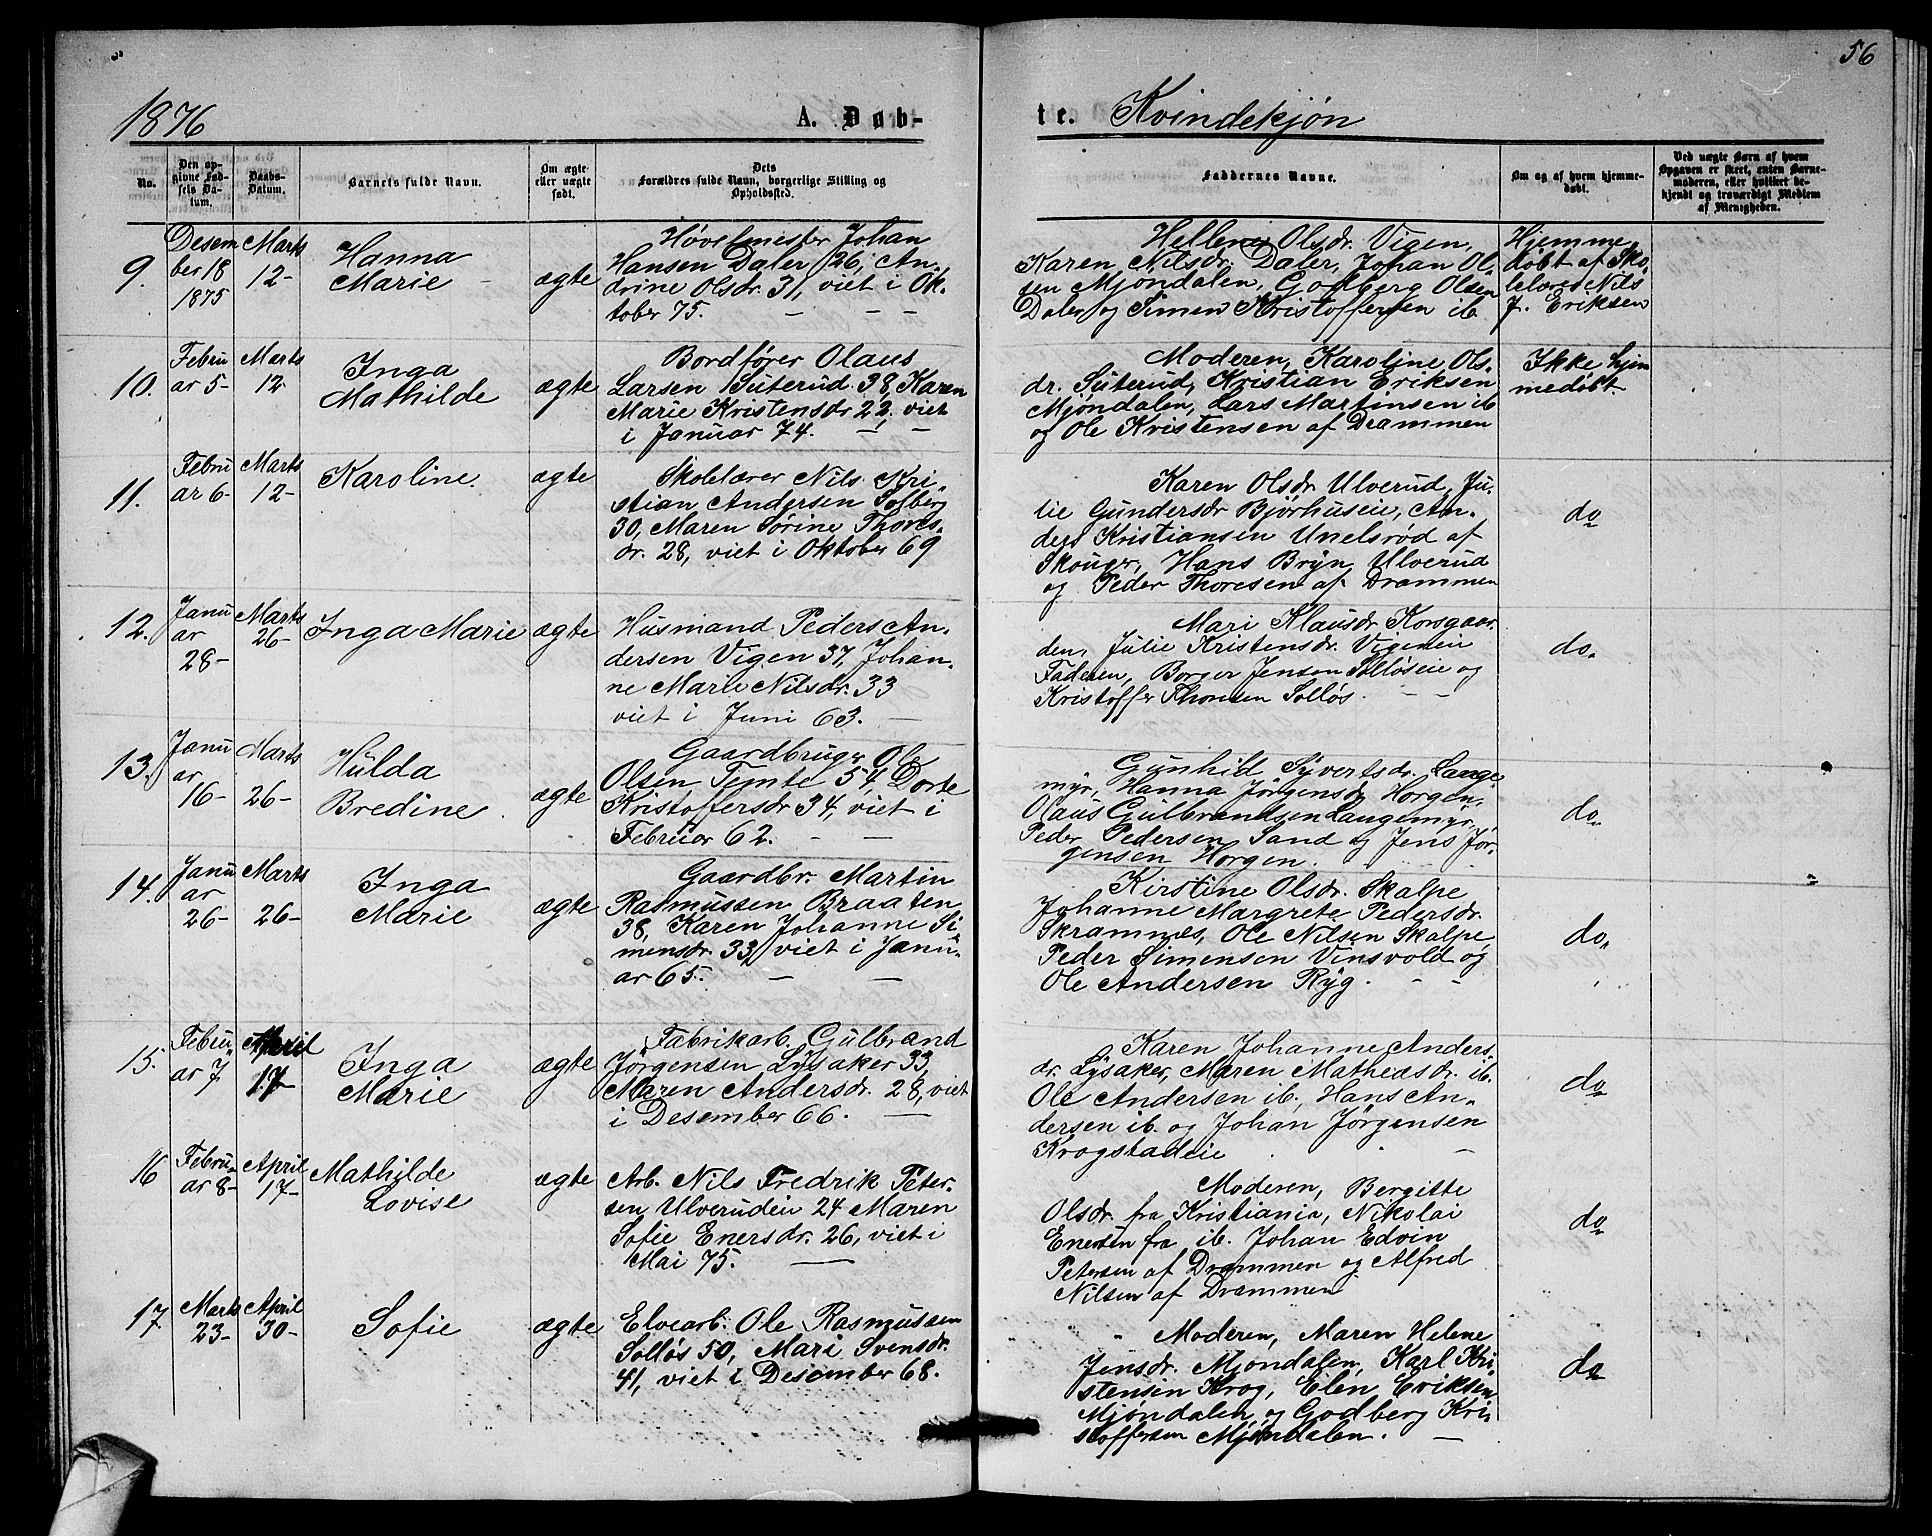 56
1876 A. Døb-
te. Kvindekjøn
No.
Den op-
givne Fød-
sels Da-
tum.
Daabs-
Datum.
Barnets fulde Navn.
Om ægte
eller uægte
født.
Dets
Forældres fulde Navn, borgerlige Stilling og
Opholdssted.
Faddernes Navne.
Om og af hvem hjemme-
døbt.
Ved uægte Børn af hvem
Opgaven er skeet, enten Barne-
moderen, eller hvilket be-
kjendt og troværdigt Medlem
af Menigheden.
9.
Desem
ber 18
1875
Marts
12-
Hanna
Marie
ægte
Høvelmester Johan
Hansen Daler 26, An-
drine Olsdr. 31, viet i Ok-
tober 75.
Hellene Olsdr. Vigen,
Karen Nilsdr. Daler, Johan Ol-
sen Mjøndalen, Godberg Olsen
Daler og Simen Kristoffersen ib.
Hjemme
døbt af Sko-
lelærer Nils
J. Eriksen
10.
Febru
ar 5-
Marts
12
Inga
Mathilde
ægte
Bordfører Olaus
Larsen Suterud 38, Karen
Marie Kristensdr 22, viet
i Januar 74.
Moderen, Karoline Ols-
dr. Suterud, Kristian Eriksen
Mjøndalen, Lars Martinsen ib
og Ole Kristensen af Drammen
Ikke hjem
medøbt
11.
Febru
ar 6-
Marts
12-
Karoline
ægte
Skolelærer Nils Kri-
stian Andersen Solberg
30, Maren Sørine Thores-
dr. 28, viet i Oktober 69
Karen Olsdr. Ulverud, Ju-
lie Gundersdr Bjørhuseie, An-
ders Kristiansen Unelsrød af
Skouger, Hans Bryn Ulverud
og Peder Thoresen af Drammen
do
12.
Janu
ar
28-
Marts
26-
Inga Marie
ægte
Husmand Peders An-
dersen Vigen 37, Johan-
ne Marie Nilsdr. 33
viet i Juni 63.
Mari Klausdr Korsgaar-
den, Julie Kristensdr. Vigeneie
Faderen, Borger Jensen Solløseie og
Kristoffer Thorsen Solløs.
do.
13.
Janu
ar
16-
Marts
26-
Hulda
Bredine
ægte
Gaardbruger Ole
Olsen Temte 54, Dorte
Kristoffersdr 34, viet i
Februar 62.
Gunhild Syvertsdr. Lange
myr, Hanna Jørgensdr Horgen,
Olaus Gulbrandsen Langemyr,
Peder Pedersen Sand og Jens Jør-
gensen Horgen.
do.
14.
Janu
ar
26-
Marts
26-
Inga
Marie
ægte
Gaardbr. Martin
Rasmussen Braaten
38, Karen Johanne Si-
mensdr. 33, viet i Janu-
ar 65.
Kirstine Olsdr. Skalpe
Johanne Margrete Pedersdr.
Skramnes, Ole Nilsen Skalpe,
Peder Simensen Vinsvold og
Ole Andersen Ryg.
do.
15.
Febru
ar 7
April
17-
Inga
Marie
ægte
Fabrikarb. Gulbrand
Jørgensen Lysaker 33,
Maren Andersdr. 28, viet
i Desember 66.
Karen Johanne Anders
dr. Lysaker, Maren Matheasdr. ib.
Ole Andersen ib., Hans An-
dersen ib. og Johan Jørgensen
Krogstadeie
do
16
Febru-
ar 8-
April
17-
Mathilde
Lovise
ægte
Arb. Nils Fredrik Peter-
sen Ulverudeie 24 Maren
Sofie Enersdr. 26, viet i
Mai 75.
Moderen, Bergitte
Olsdr. fra Kristiania, Nikolai
Enersen fra ib. Johan Edvin
Petersen af Drammen og Alfred
Nilsen af Drammen
do
17
Marts
23-
April
30-
Sofie
ægte
Elvearb. Ole Rasmussen
Solløs 50, Mari Svensdr.
41, viet i Desember 68.
Moderen, Maren Helene
Jensdr. Mjøndalen, Karl Kri-
stensen Krog, Elen Eriksen
Mjøndalen og Godberg Kri-
stoffersen Mjøndalen.
do